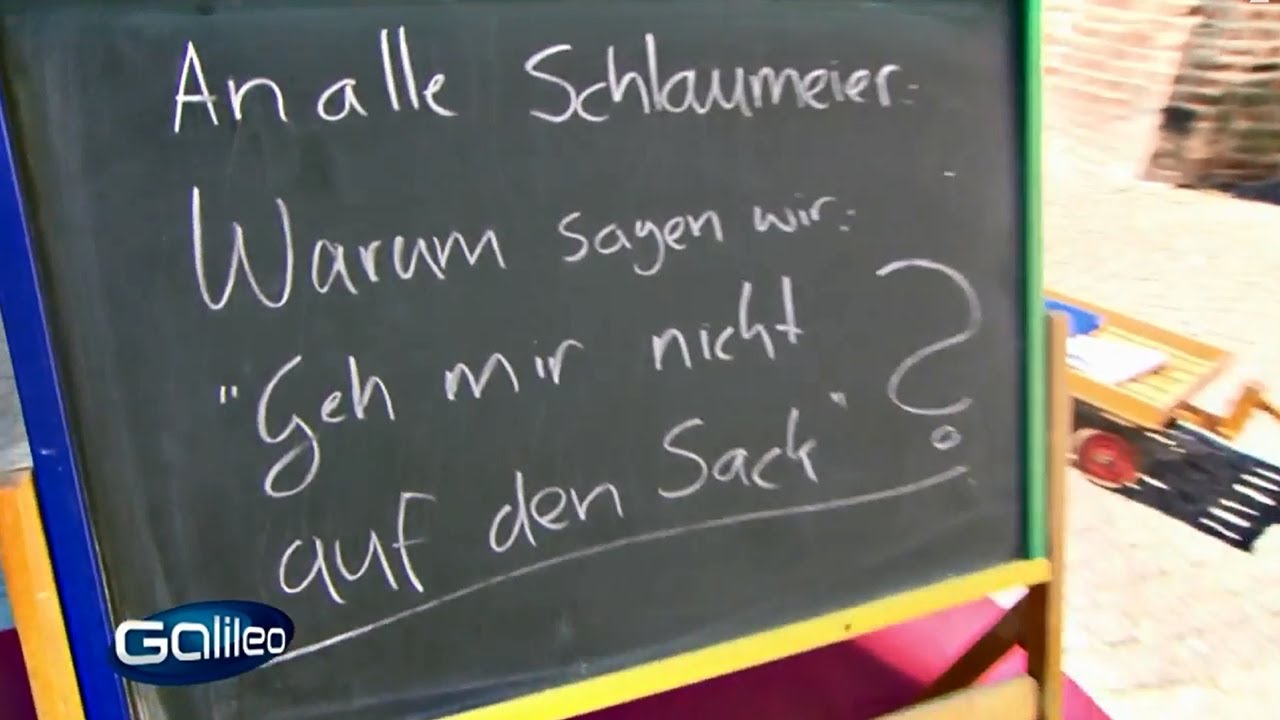 An alle Schlaumeier:
Warum sagen wir:
"Geh mir nicht
auf den Sack" ?
Galileo